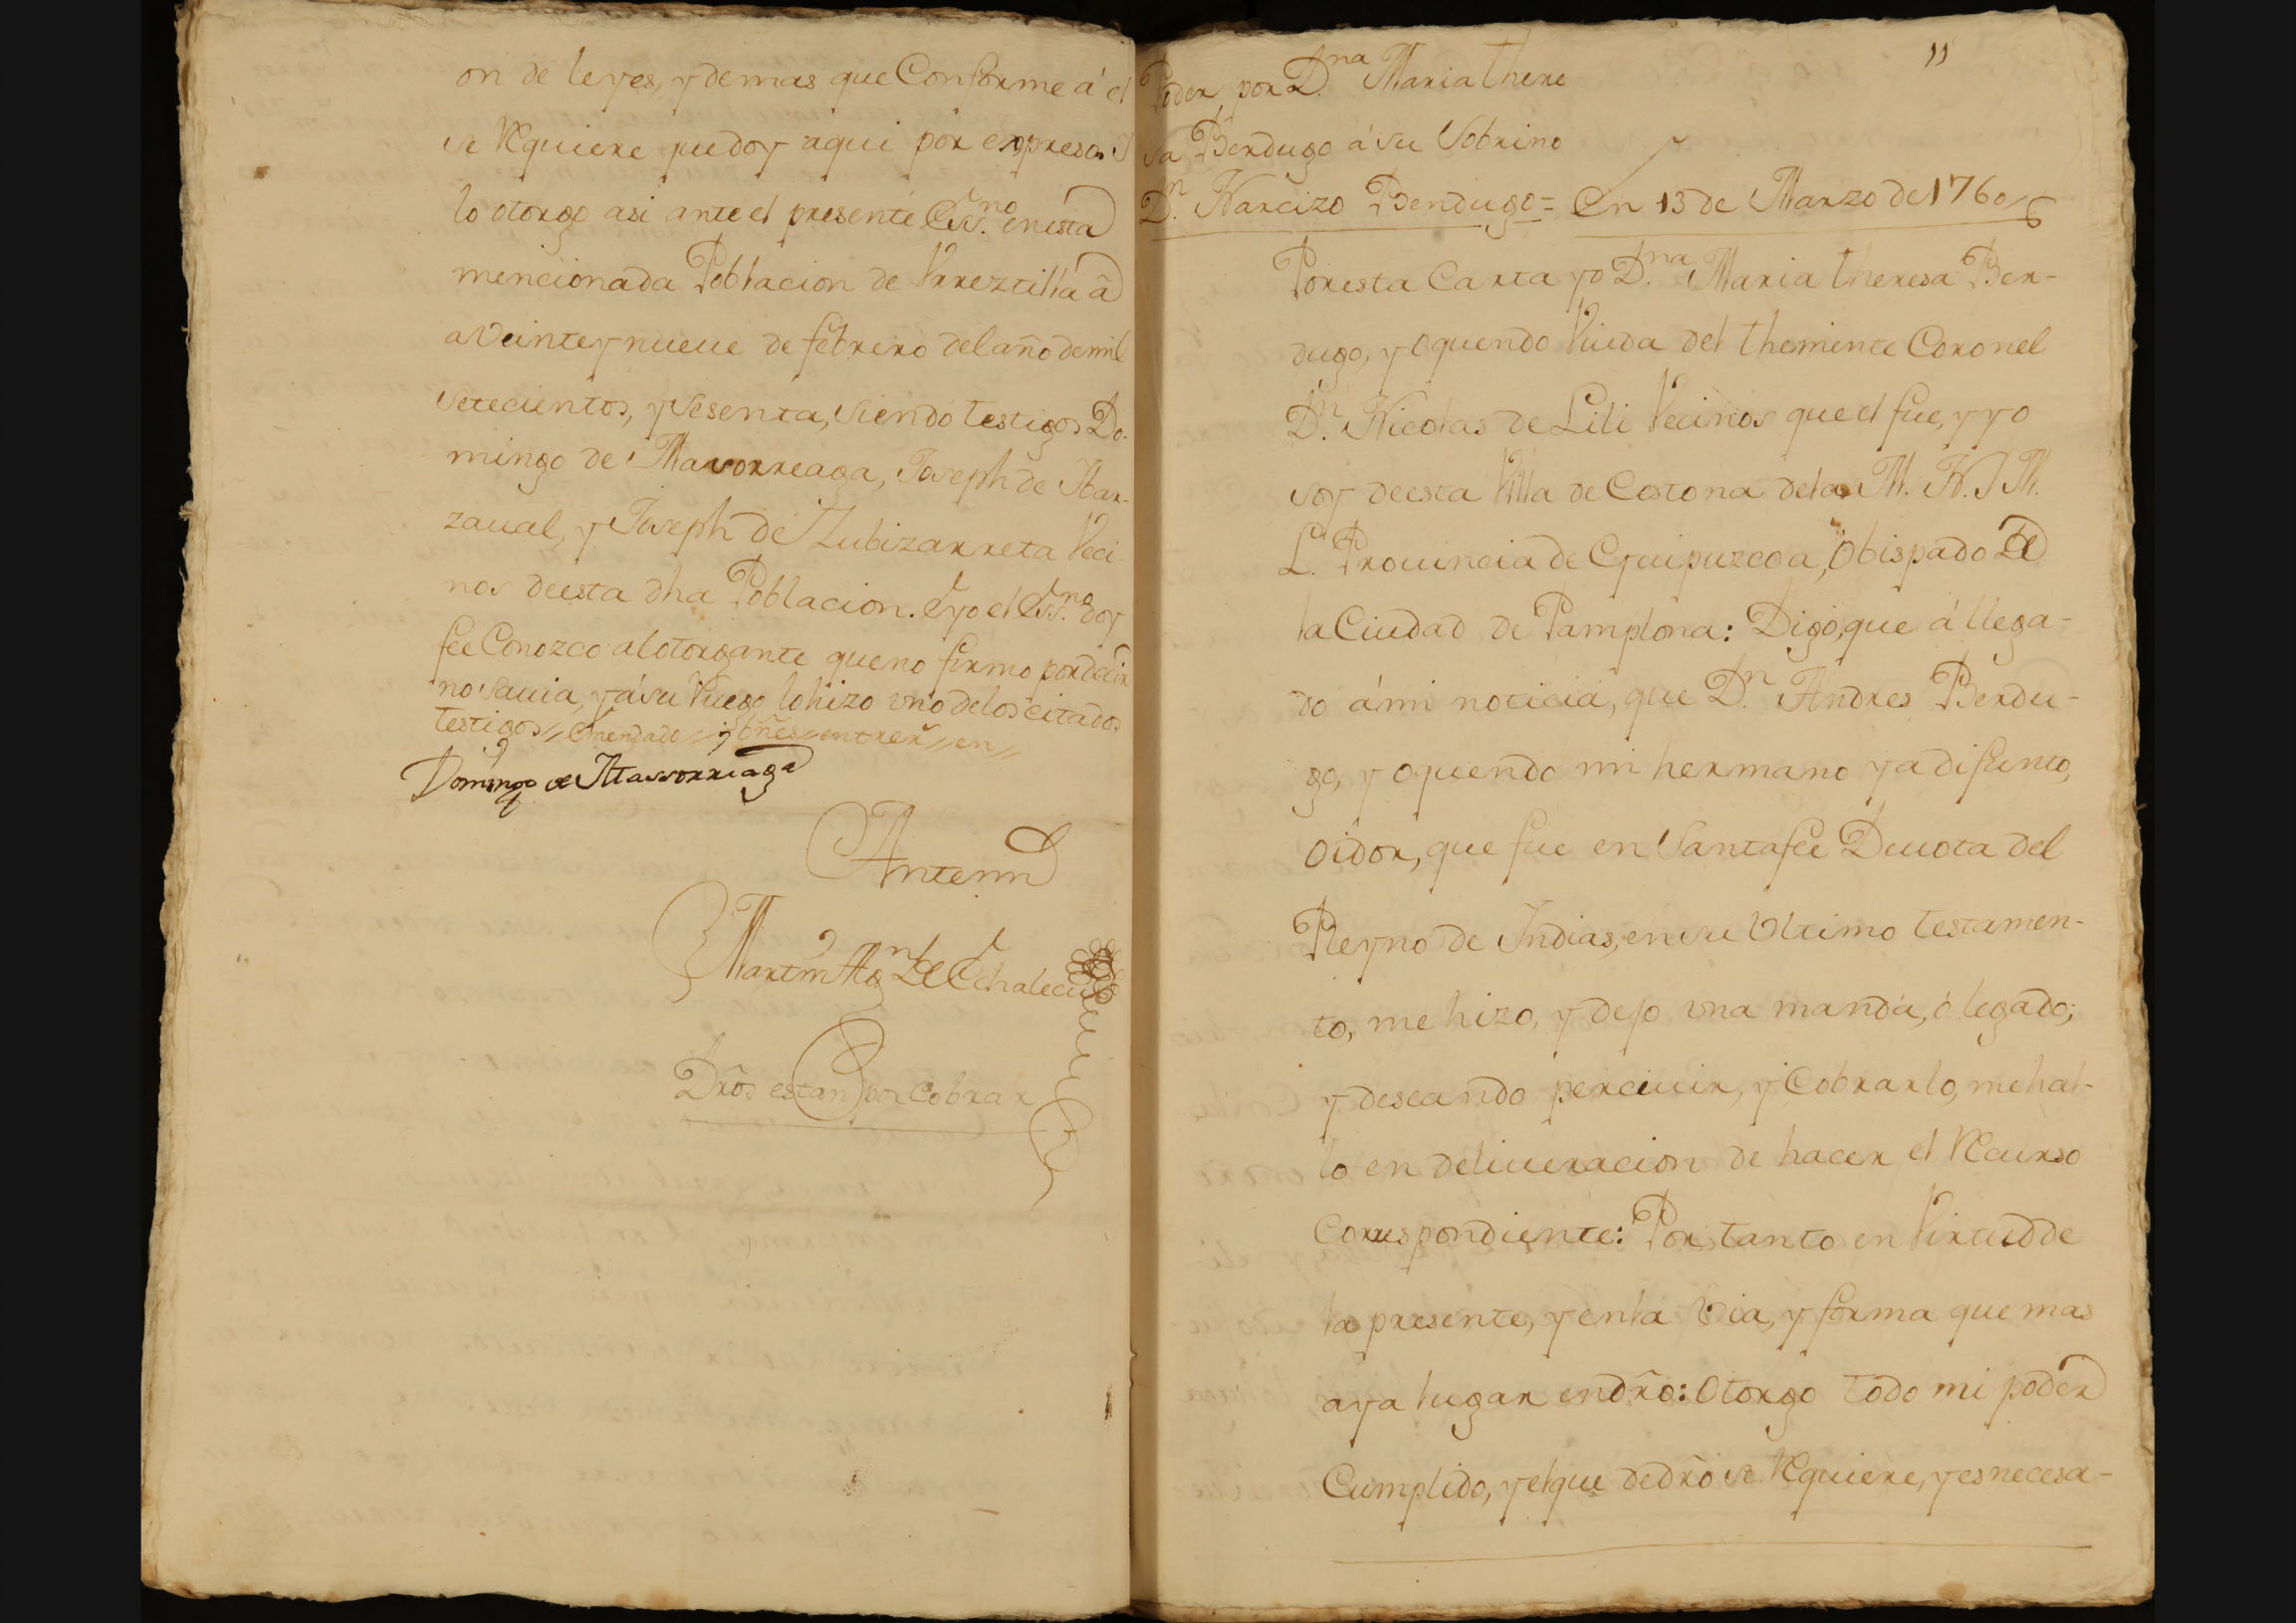 on de leyes, y demas que Conforme á el
se Requiere que doy aqui por expresa. Y
lo otorgo asi ante el presente Ess.no en esta
mencionada Poblacion de Vrreztilla á
a Veinte y nueue de febrero del año de mil
setecientos, y Sesenta, siendo testigos Do-
mingo de Masorreaga, Joseph de Ybar-
zaual, y Joseph de Zubizarreta Veci-
nos de esta dha Poblacion. E yo el Ess.no doy
fee Conozco al otorgante que no firmo por decir
no sauia, y á su Ruego lo hizo vno de los citados
testigos // emendado // entrerr // en //
Domingo de Massorriaga
Antemi
Martin Ag.n de Echalecu
Dr̃os estan por Cobrar
11
Poder por D.na Maria there
sa Berdugo á su Sobrino
D.n Narcizo Berdugo = En 13 de Marzo de 1760
Por esta Carta yo D.na Maria theresa Ber-
dugo, y oquendo Viuda del theniente Coronel
D.n Nicolas de Lili Vecinos que el fue, y yo
soy de esta Villa de Cestona de la M. N. Y M.
L. Prouincia de Guipuzcoa, Obispado De
la Ciudad de Pamplona: Digo, que á llega-
do á mi noticia, que D.n Andres Berdu-
go, y oquendo mi hermano ya difunto,
Oidor, que fue en Santafee Deuota del
Reyno de Indias, en su Vltimo testamen-
to, me hizo, y dejo vna manda, ó legado;
y deseando perciuir, y Cobrarlo, me hal-
lo en deliueracion de hacer el Recurso
Correspondiente: Por tanto en Virtud de
la presente, y en la Via, y forma que mas
aya lugar en dr̃o: Otorgo todo mi poder
Cumplido, y el que de dr̃o se Requiere, y es necesa-